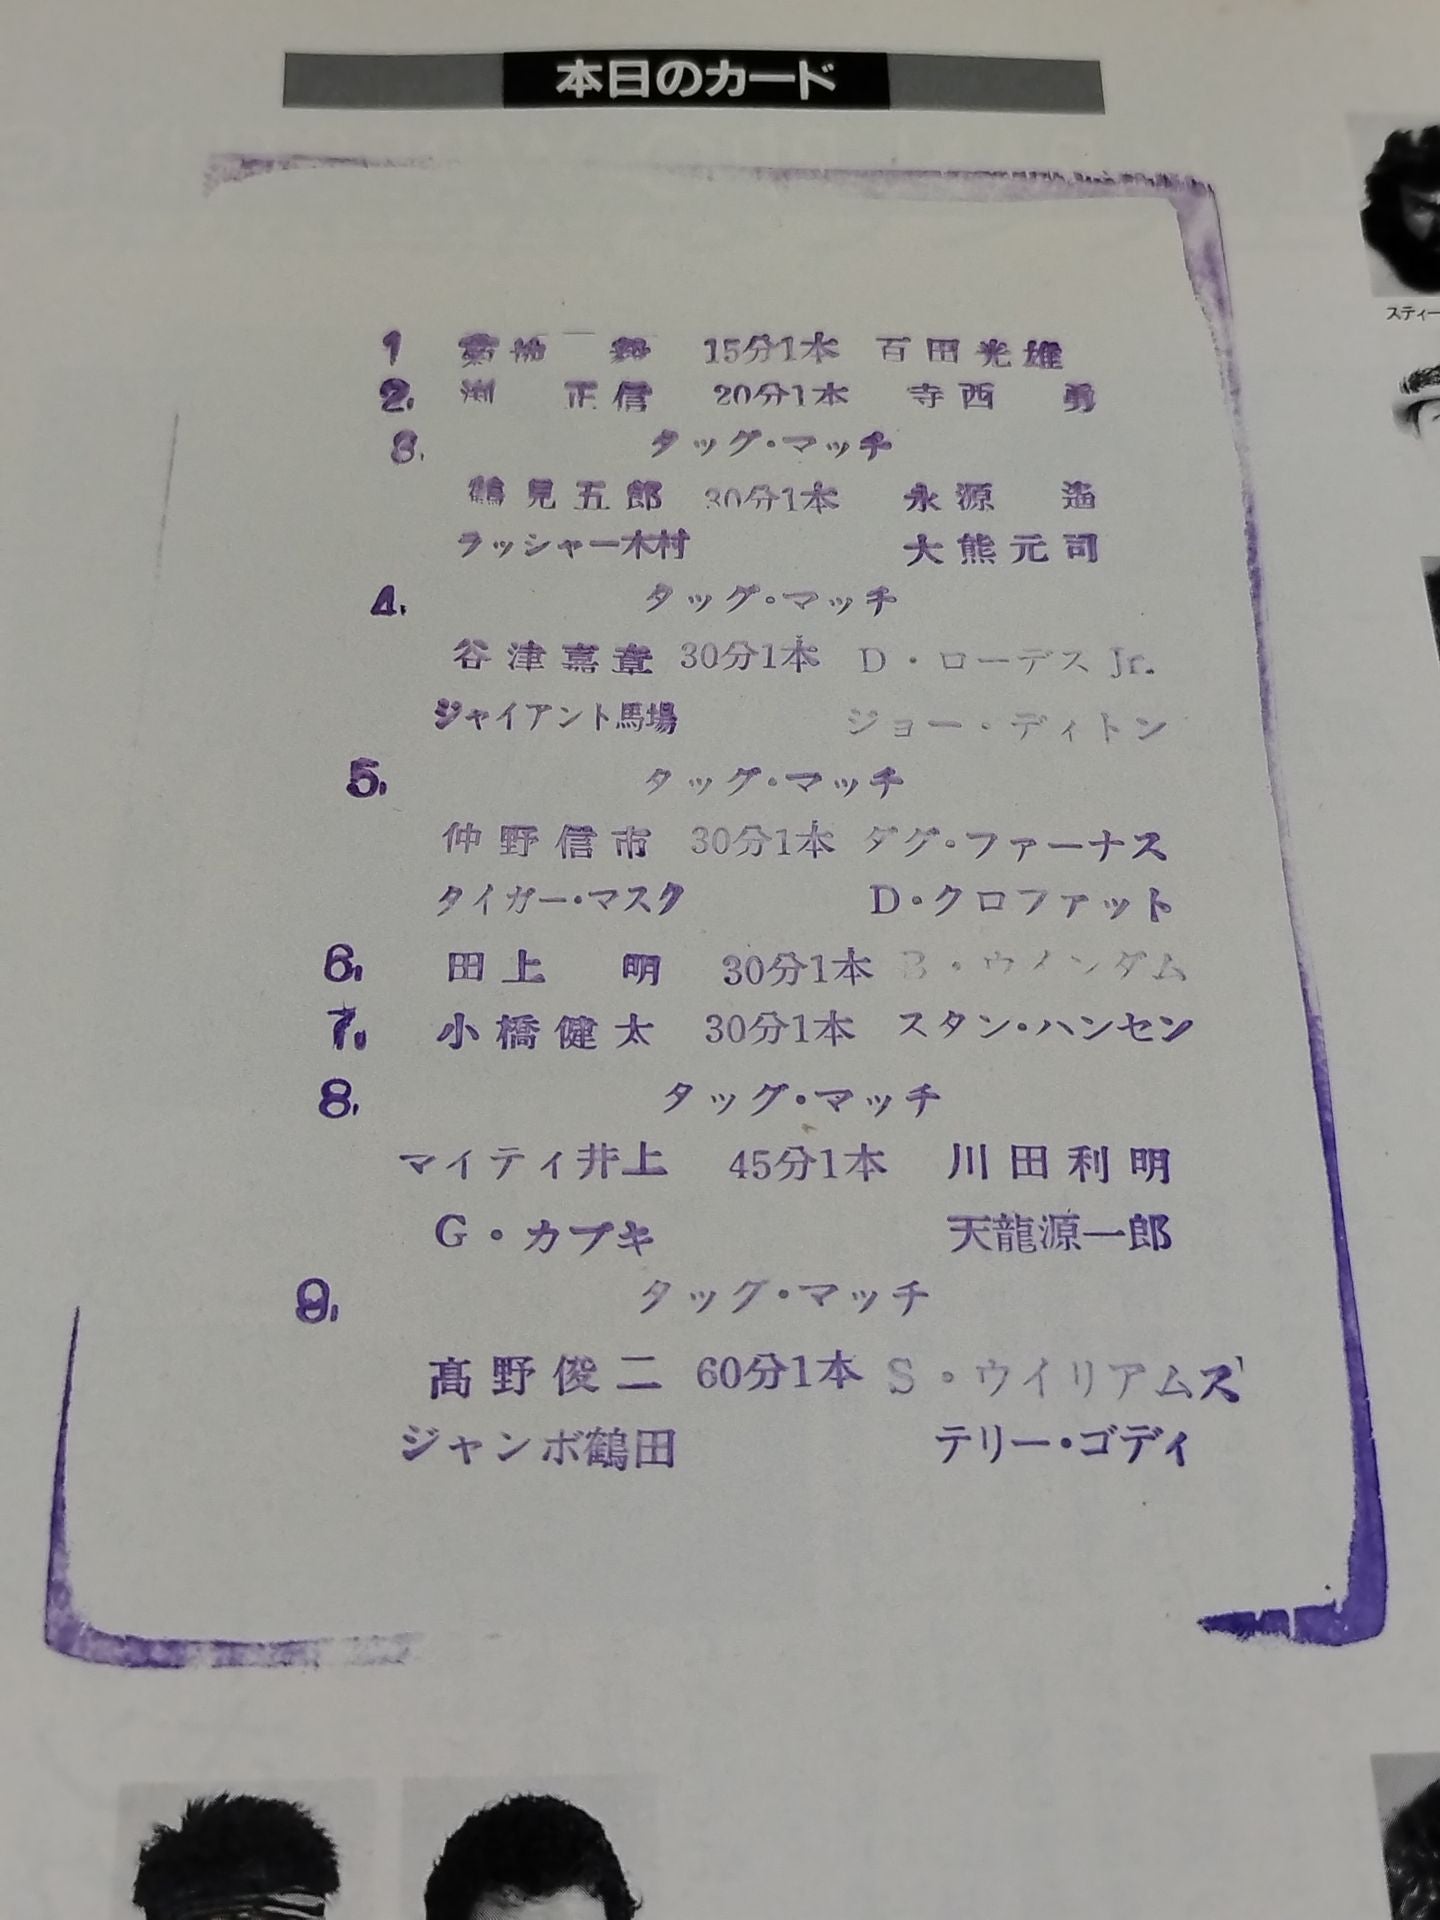 本日のカード
1 菊地 毅 15分1本 百田光雄
2. 渕 正信 20分1本 寺西 勇
3. タッグ・マッチ
鶴見五郎 30分1本 永源 遙
ラッシャー木村 大熊元司
4. タッグ・マッチ
谷津嘉章 30分1本 D・ローデスJr.
ジャイアント馬場 ジョー・ディトン
5. タッグ・マッチ
仲野信市 30分1本 ダグ・ファーナス
タイガー・マスク D・クロファット
6. 田上 明 30分1本 B・ウインダム
7. 小橋健太 30分1本 スタン・ハンセン
8. タッグ・マッチ
マイティ井上 45分1本 川田利明
G・カブキ 天龍源一郎
9. タッグ・マッチ
髙野俊二 60分1本 S・ウイリアムス
ジャンボ鶴田 テリー・ゴディ
スティー